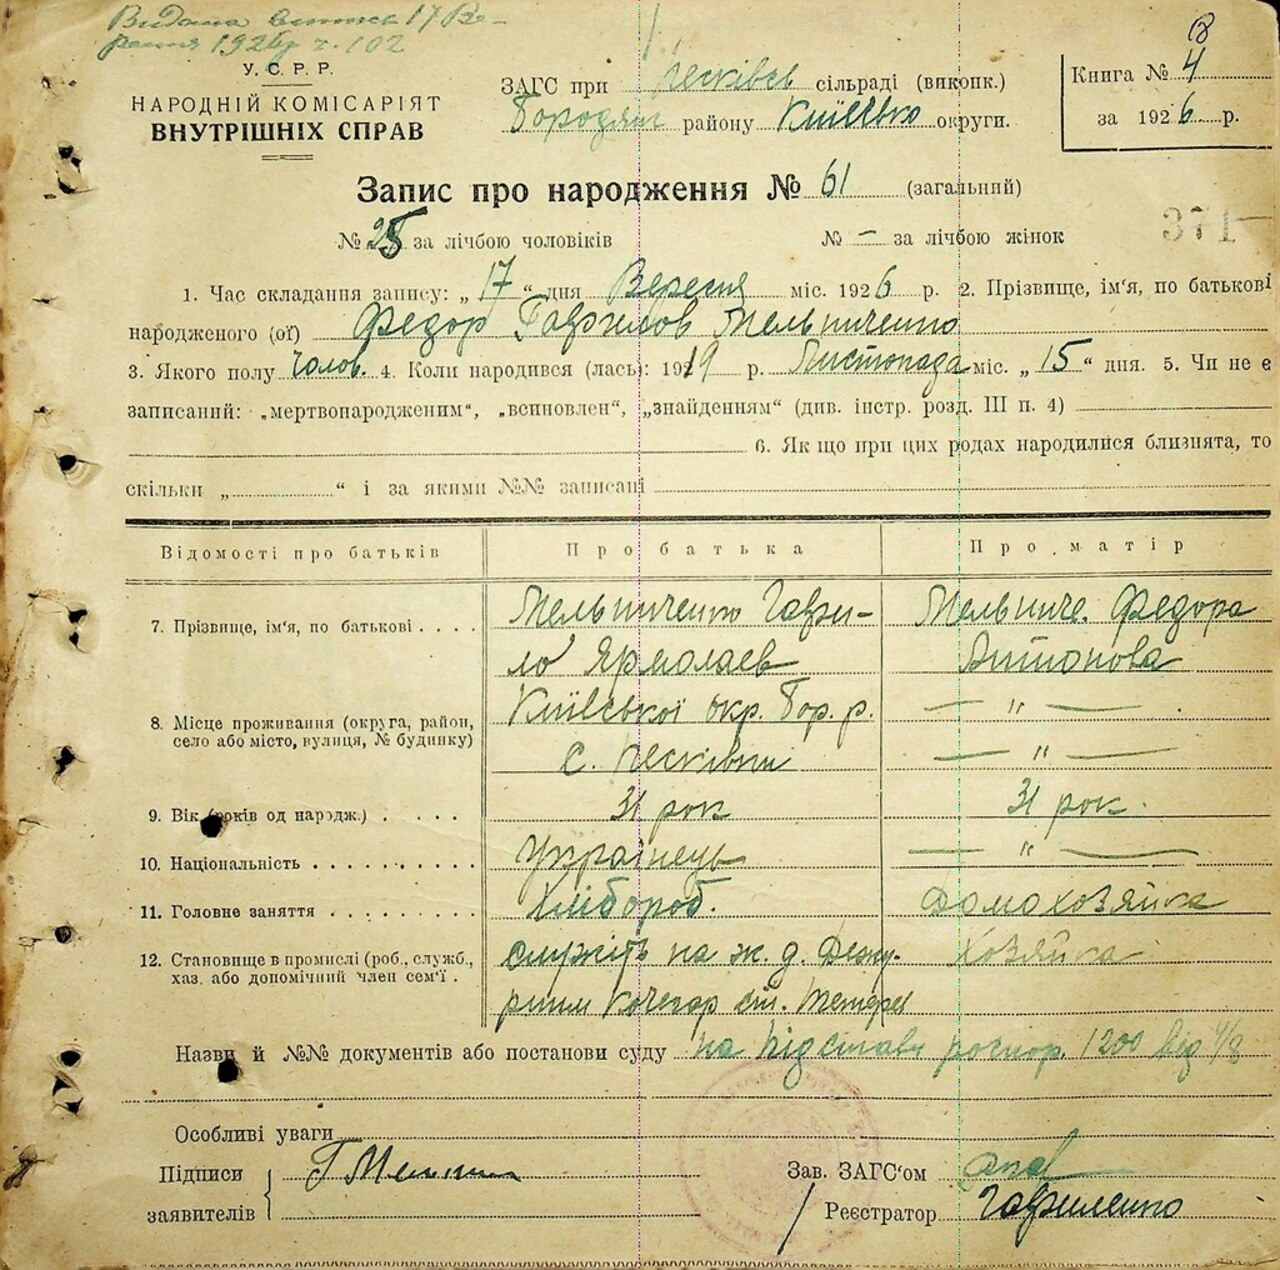 Видана витпсь 17 Ве-
ресня 1926 р ч. 102
У. С. Р. Р.
НАРОДНІЙ КОМІСАРІЯТ
ВНУТРІШНІХ СПРАВ
ЗАГС при Песківсь сільраді (виконк.)
Бородян району Київсько округи.
Книга № 4
за 1926 р.
Запис про народження № 61 (загальний)
371
№ 25 за лічбою чоловіків № — за лічбою жінок
1. Час складання запису: „17“ дня Вересня міс. 1926 р. 2. Прізвище, ім'я, по батькові
народженого (ої) Федор Гаврилов Мельниченко
3. Якого полу чолов. 4. Коли народився (лась): 1919 р. Листопада міс. „15“ дня. 5. Чи не є
записаний: „мертвонародженим“, „всиновлен“, „знайденням“ (див. інстр. розд. III п. 4)
6. Як що при цих родах народилися близнята, то
скільки „ “ і за якими №№ записані
Відомості про батьків Про батька Про матір
7. Прізвище, ім'я, по батькові . . . . Мельниченко Гаври- Мельниче. Федора
ло Ярмолаев Антонова
8. Місце проживання (округа, район, Київської окр. Бор. р. — " —
село або місто, вулиця, № будинку) с. Песківки — " —
9. Вік (років од народж.) . . . . 31 рок 31 рок.
10. Національність . . . . . . . . . Українець — " —
11. Головне заняття . . . . . . . . Хлібороб. Домохозяйка
12. Становище в промислі (роб., служб., служить на ж. д. Дежу- Хозяйка
хаз. або допомічний член сем'ї . рним кочегар ст. Тетерев
Назви й №№ документів або постанови суду на підставі розпор. 1200 від 4/8
Особливі уваги
Підписи Г Мельни
заявителів
Зав. ЗАГС'ом
Реєстратор Гавриленко